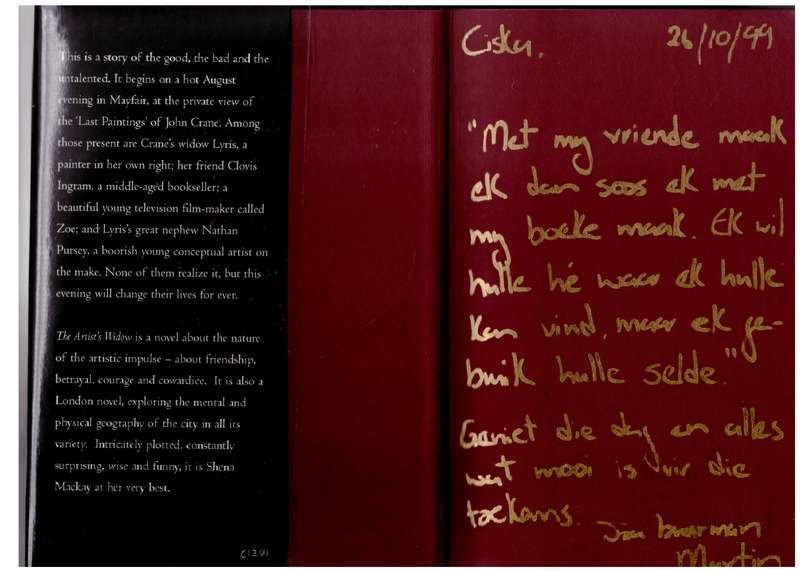 This is a story of the good, the bad and the
untalented. It begins on a hot August
evening in Mayfair, at the private view of
the 'Last Paintings' of John Crane. Among
those present are Crane's widow Lyris, a
painter in her own right; her friend Clovis
Ingram, a middle-aged bookseller; a
beautiful young television film-maker called
Zoe; and Lyris's great nephew Nathan
Pursey, a boorish young conceptual artist on
the make. None of them realize it, but this
evening will change their lives for ever.
The Artist's Widow is a novel about the nature
of the artistic impulse – about friendship,
betrayal, courage and cowardice. It is also a
London novel, exploring the mental and
physical geography of the city in all its
variety. Intricately plotted, constantly
surprising, wise and funny, it is Shena
Mackay at her very best.
£12.99
Ciska. 26/10/99
"Met my vriende maak
ek dan soos ek met
my boeke maak. Ek wil
hulle hê waar ek hulle
kan vind, maar ek ge-
bruik hulle selde."
Geniet die dag en alles
wat mooi is vir die
toekoms. Jou buurman
Martin